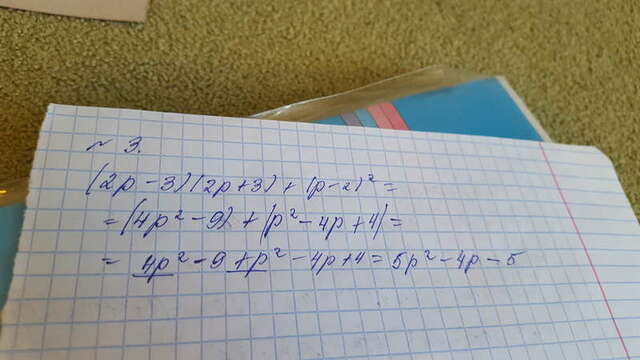 ~ 3.
(2p-3)(2p+3)+(p-2)²=
=(4p²-9)+(p²-4p+4)=
= 4p²-9+p²-4p+4=5p²-4p-5